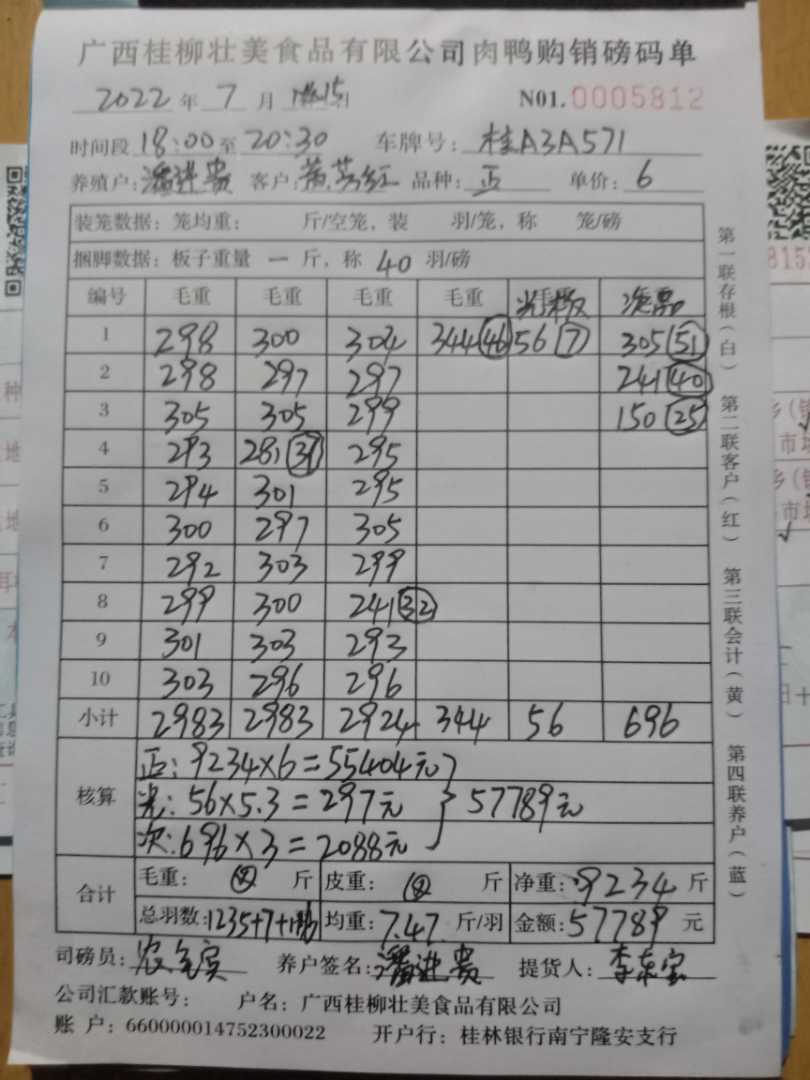 广西桂柳壮美食品有限公司肉鸭购销磅码单
2022 年 7 月 15日 N01.0005812
时间段 18:00 至 20:30 车牌号: 桂A3A571
养殖户: 潘进贵 客户: 红 品种: 正 单价: 6
装笼数据: 笼均重: 斤/空笼, 装 羽/笼, 称 笼/磅
捆脚数据: 板子重量 一 斤, 称 40 羽/磅
编号 毛重 毛重 毛重 毛重 光板 次品
1 298 300 304 344(46) 56(7) 305(51)
2 298 297 297 241(40)
3 305 305 299 150(25)
4 293 281(37) 295
5 294 301 295
6 300 297 305
7 292 303 299
8 299 300 241(32)
9 301 303 293
10 303 296 296
小计 2983 2983 2924 344 56 696
核算 正: 9234×6=55404元
光: 56×5.3=297元 } 57789元
次: 696×3=2088元
合计 毛重: 斤 皮重: 斤 净重: 9234 斤
总羽数: 1235+7+116 均重: 7.47 斤/羽 金额: 57789 元
司磅员: 农 宾 养户签名: 潘进贵 提货人: 李东宝
公司汇款账号: 户名: 广西桂柳壮美食品有限公司
账 户: 660000014752300022 开户行: 桂林银行南宁隆安支行
第一联存根(白) 第二联客户(红) 第三联会计(黄) 第四联养户(蓝)